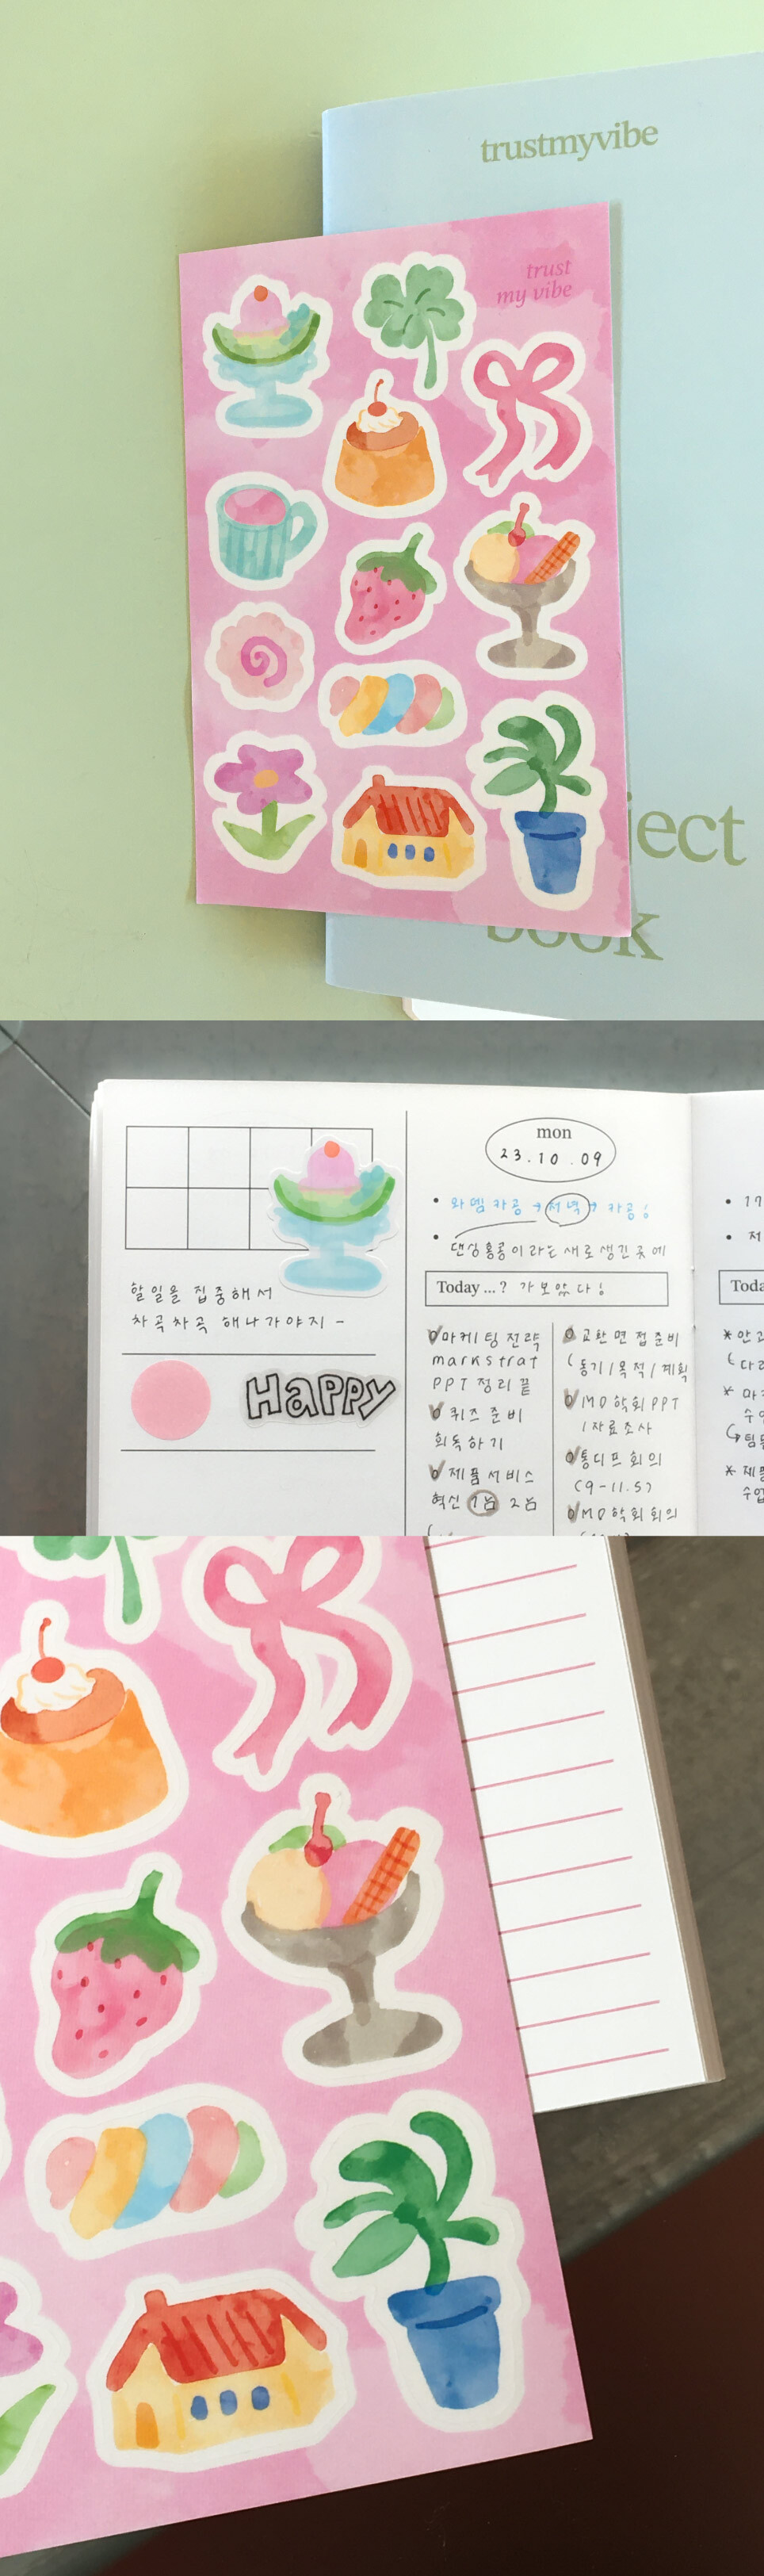 trustmyvibe
trust
my vibe
ject
book
mon
23.10.09
• 와뎀카공 → 저녁 → 카공!
• 댄싱홍콩이라는 새로 생긴 곳에
Today ...? 가보았다!
할 일을 집중해서
차곡차곡 해나가야지 -
HAPPY
마케팅 전략
markstrat
PPT 정리 끝
퀴즈 준비
회독하기
제품서비스
혁신 1님 2님
교환면접준비
(동기/목적/계획
MD학회 PPT
/자료조사
통디프 회의
(9-11.5)
MD학회 회의
• 17
• 저
Toda